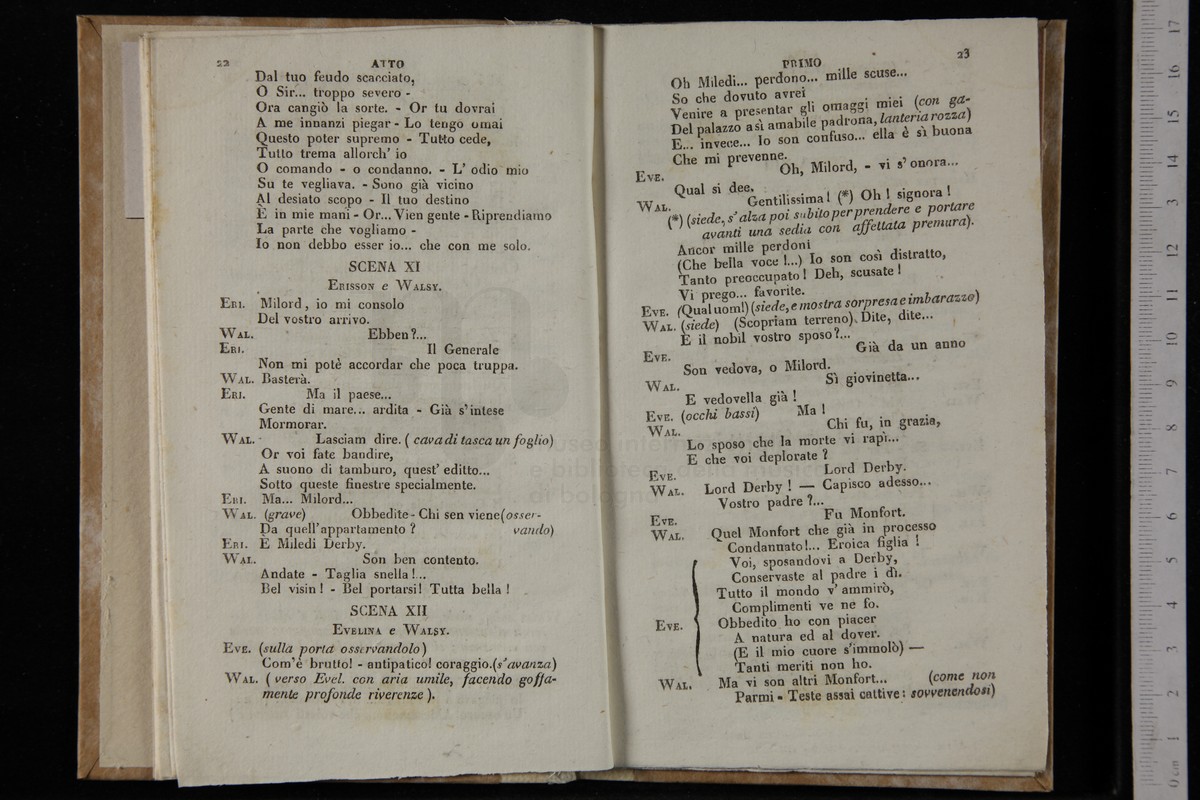 22 ATTO
Dal tuo feudo scacciato,
O Sir... troppo severo -
Ora cangiò la sorte. - Or tu dovrai
A me innanzi piegar - Lo tengo omai
Questo poter supremo - Tutto cede,
Tutto trema allorch' io
O comando - o condanno. - L' odio mio
Su te vegliava. - Sono già vicino
Al desiato scopo - Il tuo destino
È in mie mani - Or... Vien gente - Riprendiamo
La parte che vogliamo -
Io non debbo esser io... che con me solo.
SCENA XI
ERISSON e WALSY.
ERI. Milord, io mi consolo
Del vostro arrivo.
WAL. Ebben?...
ERI. Il Generale
Non mi potè accordar che poca truppa.
WAL. Basterà.
ERI. Ma il paese...
Gente di mare... ardita - Già s'intese
Mormorar.
WAL. Lasciam dire. (cava di tasca un foglio)
Or voi fate bandire,
A suono di tamburo, quest' editto...
Sotto queste finestre specialmente.
ERI. Ma... Milord...
WAL. (grave) Obbedite - Chi sen viene (osser-
Da quell'appartamento? vando)
ERI. È Miledi Derby.
WAL. Son ben contento.
Andate - Taglia snella!...
Bel visin! - Bel portarsi! Tutta bella!
SCENA XII
EVELINA e WALSY.
EVE. (sulla porta osservandolo)
Com'è brutto! - antipatico! coraggio. (s'avanza)
WAL. (verso Evel. con aria umile, facendo goffa-
mente profonde riverenze).
PRIMO 23
Oh Miledi... perdono... mille scuse...
So che dovuto avrei
Venire a presentar gli omaggi miei (con ga-
Del palazzo a sì amabile padrona, lanteria rozza)
E... invece... Io son confuso... ella è sì buona
Che mi prevenne.
EVE. Oh, Milord, - vi s' onora...
Qual si dee.
WAL. Gentilissima! (*) Oh! signora!
(*) (siede, s'alza poi subito per prendere e portare
avanti una sedia con affettata premura).
Ancor mille perdoni
(Che bella voce!...) Io son così distratto,
Tanto preoccupato! Deh, scusate!
Vi prego... favorite.
EVE. (Qual uom!) (siede, e mostra sorpresa e imbarazzo)
WAL. (siede) (Scopriam terreno). Dite, dite...
E il nobil vostro sposo?...
EVE. Già da un anno
Son vedova, o Milord.
WAL. Sì giovinetta...
E vedovella già!
EVE. (occhi bassi) Ma!
WAL. Chi fu, in grazia,
Lo sposo che la morte vi rapì...
E che voi deplorate?
EVE. Lord Derby.
WAL. Lord Derby! — Capisco adesso...
Vostro padre?...
EVE. Fu Monfort.
WAL. Quel Monfort che già in processo
Condannato!... Eroica figlia!
Voi, sposandovi a Derby,
Conservaste al padre i dì.
Tutto il mondo v' ammirò,
Complimenti ve ne fo.
EVE. Obbedito ho con piacer
A natura ed al dover.
(E il mio cuore s'immolò) —
Tanti meriti non ho.
WAL. Ma vi son altri Monfort... (come non
Parmi - Teste assai cattive: sovvenendosi)